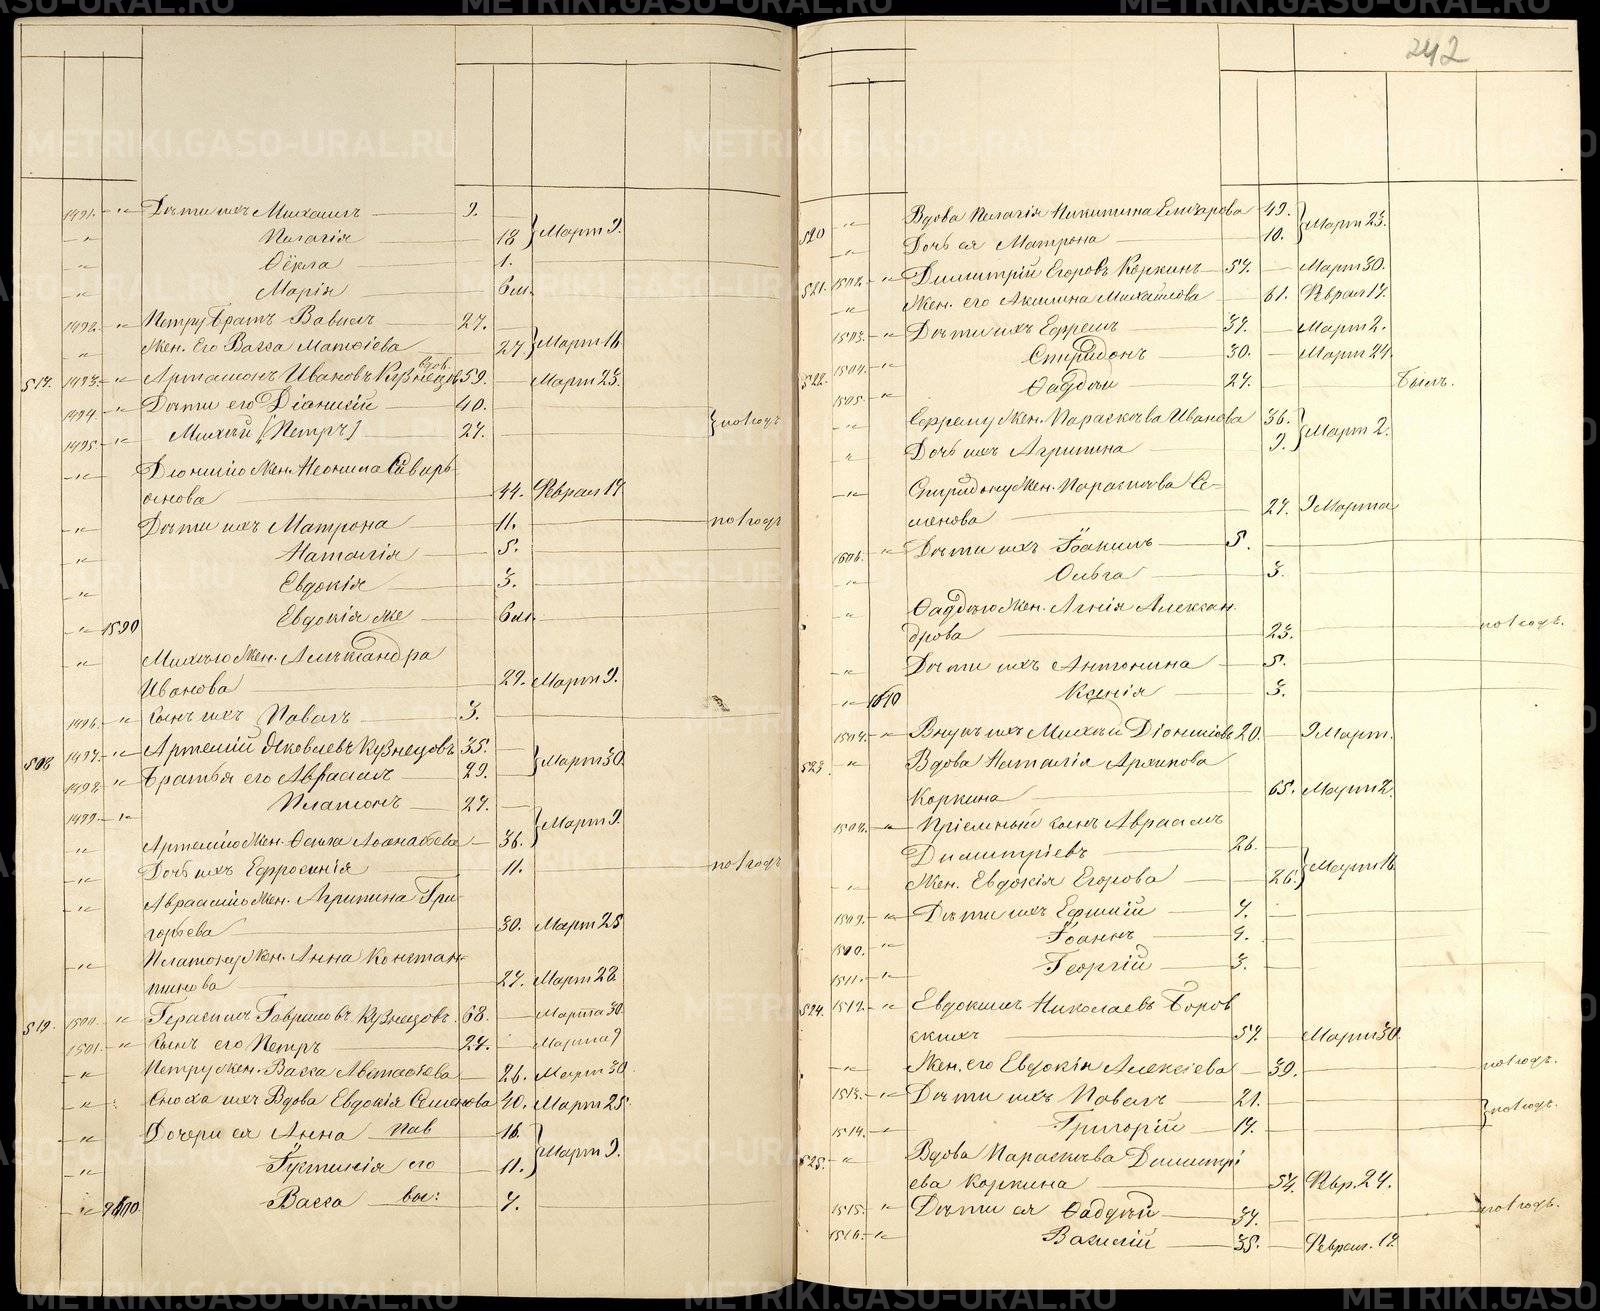 242
1491. -"- Дѣти ихъ Михаилъ 9.
-"- Пелагія 18 } Март 9.
-"- Ѳёкла 1.
-"- Марія 6 м.
1492. -"- Петру братъ Вавилъ 27.
" Жен. Его Васса Матѳіева 27 } Март 16
517. 1493. -"- Артамонъ Ивановъ Кузнецовъ вдов. 59. Март 23.
1494 -"- Дѣти его Діонисій 40.
1495 -"- Михѣй [Петръ] 27. } по 1 годъ
-"- Діонисію Жен. Неонила Саверь-
янова 44. Феврал 17
-"- Дѣти ихъ Матрона 11. по 1 годъ
" Наталія 5.
-"- Евдокія 3.
-"- 1590 Евдокія же 6 м.
-"- Михѣю Жен. Александра
Иванова 29. Март 9.
1496. -"- Сынъ ихъ Павелъ 3.
518 1497. -"- Артемій Яковлевъ Кузнецовъ 35.
1498. -"- Братья его Авраамъ 29. } Март 30
1499. -"- Платонъ 27.
" Артемію Жен. Ѳёкла Аѳанасьева 36. } Март 9.
-"- Дочь ихъ Ефросинія 11. по 1 годъ
-"- Авраамію Жен. Агрипина Гри-
горьева 30. Март 25
-"- Платону Жен. Анна Констан-
тинова 27. Март 28
519. 1500. -"- Герасимъ Гавриловъ Кузнецовъ. 68. Марта 30
1501. -"- Сынъ его Петръ 24. Марта 9
-"- Петру жен. Васса Австаѳьева 26. Март 30
-"- Сноха ихъ Вдова Евдокія Семенова 40. Март 25
-"- Дочери ея Анна Пав 16.
-"- Іустинія его 11. } Март 9.
-"- Васса вы: 7.
520 -"- Вдова Пелагія Никитина Елизарова 49.
Дочь ея Матрона 10. } Март 23.
521. 1502. -"- Димитрій Егоровъ Коркинъ 57. Март 30.
-"- Жен. его Акилина Михайлова 61. Феврал 17.
1503. -"- Дѣти ихъ Ефремъ 37. Март 2.
522. 1504. -"- Спиридонъ 30. Март 24.
1505. -"- Ѳаддѣй 27. былъ.
-"- Ефрему Жен. Параскева Иванова 36.
" Дочь ихъ Агрипина 9. } Март 2.
-"- Спиридону Жен. Параскева Се-
менова 27. 9 Марта
1506. -"- Дѣти ихъ Іоакимъ 5.
-"- Ольга 3.
" Ѳаддѣю Жен. Агнія Алексан.
дрова 23. по 1 годъ.
-"- Дѣти ихъ Антонина 5.
-"- 1610 Ксенія 3.
1507. -"- Внукъ ихъ Михѣй Діонисіевъ 20. 9 Март.
523. -"- Вдова Наталія Архипова
Коркина 65. Март 2.
1508. -"- Пріемный сынъ Авраамъ
Димитріевъ 26.
-"- Жен. Евдокія Егорова 26. } Март 16
1509. -"- Дѣти ихъ Ефимій 7.
1510. -"- Іоаннъ 4.
1511. -"- Георгій 3.
524. 1512. -"- Евдокимъ Николаевъ Боров
скихъ 57. Март 30.
-"- Жен. его Евдокія Алексіева 39. по 1 годъ.
1513. -"- Дѣти ихъ Павелъ 21.
1514. -"- Григорій 17. } по 1 годъ.
525. -"- Вдова Параскева Димитрі
ева Коркина 54. Февр. 24.
1515. -"- Дѣти ея Ѳаддѣй 37. по 1 годъ.
1516. -"- Василій 35. Феврал. 17.